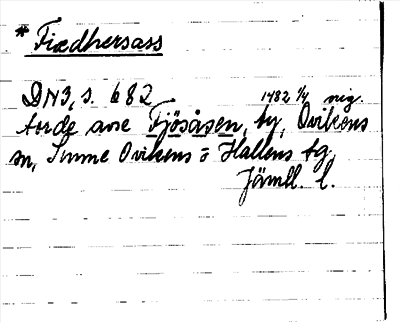 * Fiædhersass
DN3, s. 682 1482 1/4 vig.
torde avse Fjösåsen, by, Ovikens
sn, Sunne Ovikens o Hallens tg,
Jämtl. l.